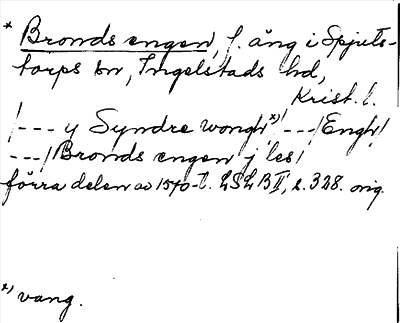 * Bronds engen, f. äng i Spjuts-
torps sn, Ingelstads hd,
Krist. l.
/--- y Syndre wongh x)/ ---/Engh/
---/Bronds engen j les/
förra delen av 1570-t. LSLB II, s. 328. orig.
x) vang.